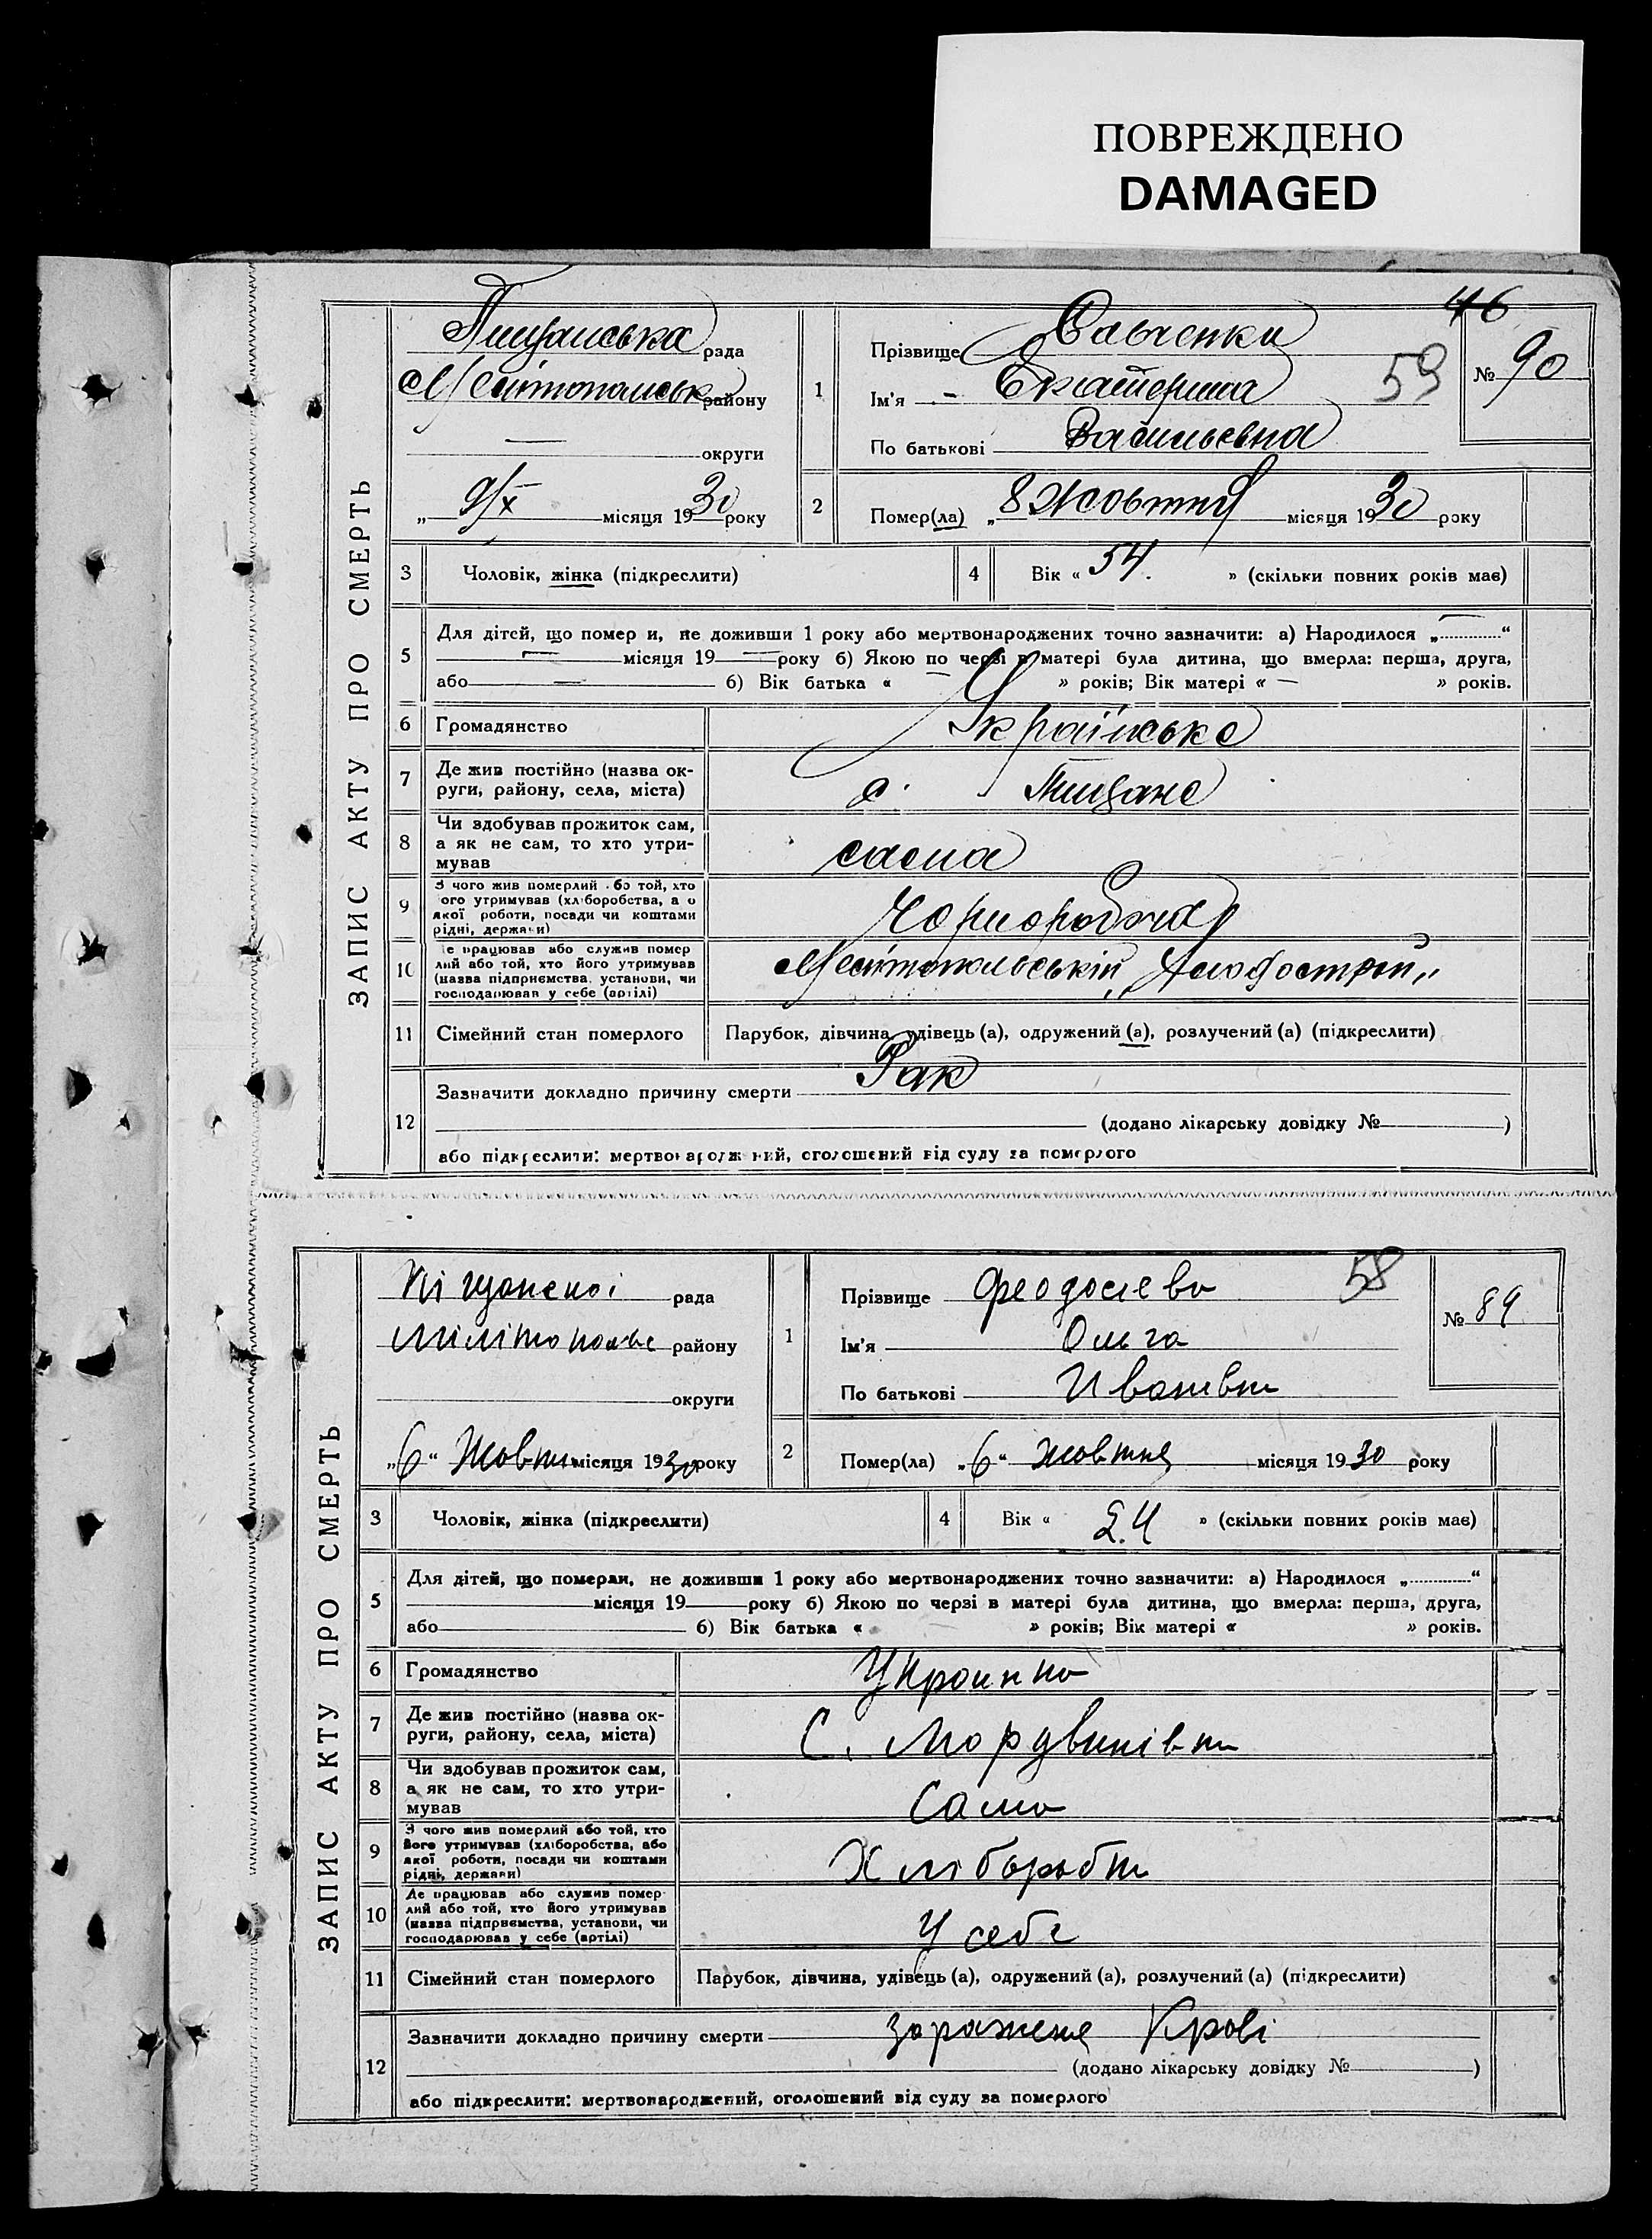 ПОВРЕЖДЕНО
DAMAGED
46
ЗАПИС АКТУ ПРО СМЕРТЬ
Пищанська рада
Мелітопольськ району
— округи
„ 9/X місяця 1930 року
1
Прізвище
Ім'я - Екатерина
По батькові Васильевна
59
№ 90
2
Помер(ла) „8 Жовтня місяця 1930 року
3
Чоловік, жінка (підкреслити)
4
Вік « 54. » (скільки повних років має)
5
Для дітей, що помер и, не доживши 1 року або мертвонароджених точно зазначити: а) Народилося „ — “
— місяця 19 — року б) Якою по черзі в матері була дитина, що вмерла: перша, друга,
або — б) Вік батька « — » років; Вік матері « — » років.
6
Громадянство Українське
7
Де жив постійно (назва ок-
руги, району, села, міста)
с. Пищане
8
Чи здобував прожиток сам,
а як не сам, то хто утри-
мував
сама
9
З чого жив померлий або той, хто
ого утримував (хліборобства, а о
якої роботи, посади чи коштами
рідні, держави)
Чорноробча
10
е працював або служив помер
лий або той, хто його утримував
(назва підприємства, установи, чи
господарював у себе (артілі)
Мелітопольській
11
Сімейний стан померлого
Парубок, дівчина, удівець (а), одружений (а), розлучений (а) (підкреслити)
12
Зазначити докладно причину смерти Рак
(додано лікарську довідку № )
або підкреслити: мертвонароджений, оголошений від суду за померлого
ЗАПИС АКТУ ПРО СМЕРТЬ
Піщанскої рада
Мілітопольс району
округи
„6“ Жовтн місяця 1930 року
1
Прізвище Феодосієва
Ім'я Ольга
По батькові Ивонівна
58
№ 89
2
Помер(ла) „6“ жовтня місяця 1930 року
3
Чоловік, жінка (підкреслити)
4
Вік « 24 » (скільки повних років має)
5
Для дітей, що померли, не доживши 1 року або мертвонароджених точно зазначити: а) Народилося „ “
місяця 19 року б) Якою по черзі в матері була дитина, що вмерла: перша, друга,
або б) Вік батька « » років; Вік матері « » років.
6
Громадянство Украинка
7
Де жив постійно (назва ок-
руги, району, села, міста)
С. Мордвинівка
8
Чи здобував прожиток сам,
а як не сам, то хто утри-
мував
Сама
9
З чого жив померлий або той, хто
його утримував (хліборобства, або
якої роботи, посади чи коштами
рідні, держави)
Хліборобка
10
Де працював або служив помер-
лий або той, хто його утримував
(назва підприємства, установи, чи
господарював у себе (артілі)
У себе
11
Сімейний стан померлого
Парубок, дівчина, удівець (а), одружений (а), розлучений (а) (підкреслити)
12
Зазначити докладно причину смерти зараженя Крові
(додано лікарську довідку № )
або підкреслити: мертвонароджений, оголошений від суду за померлого